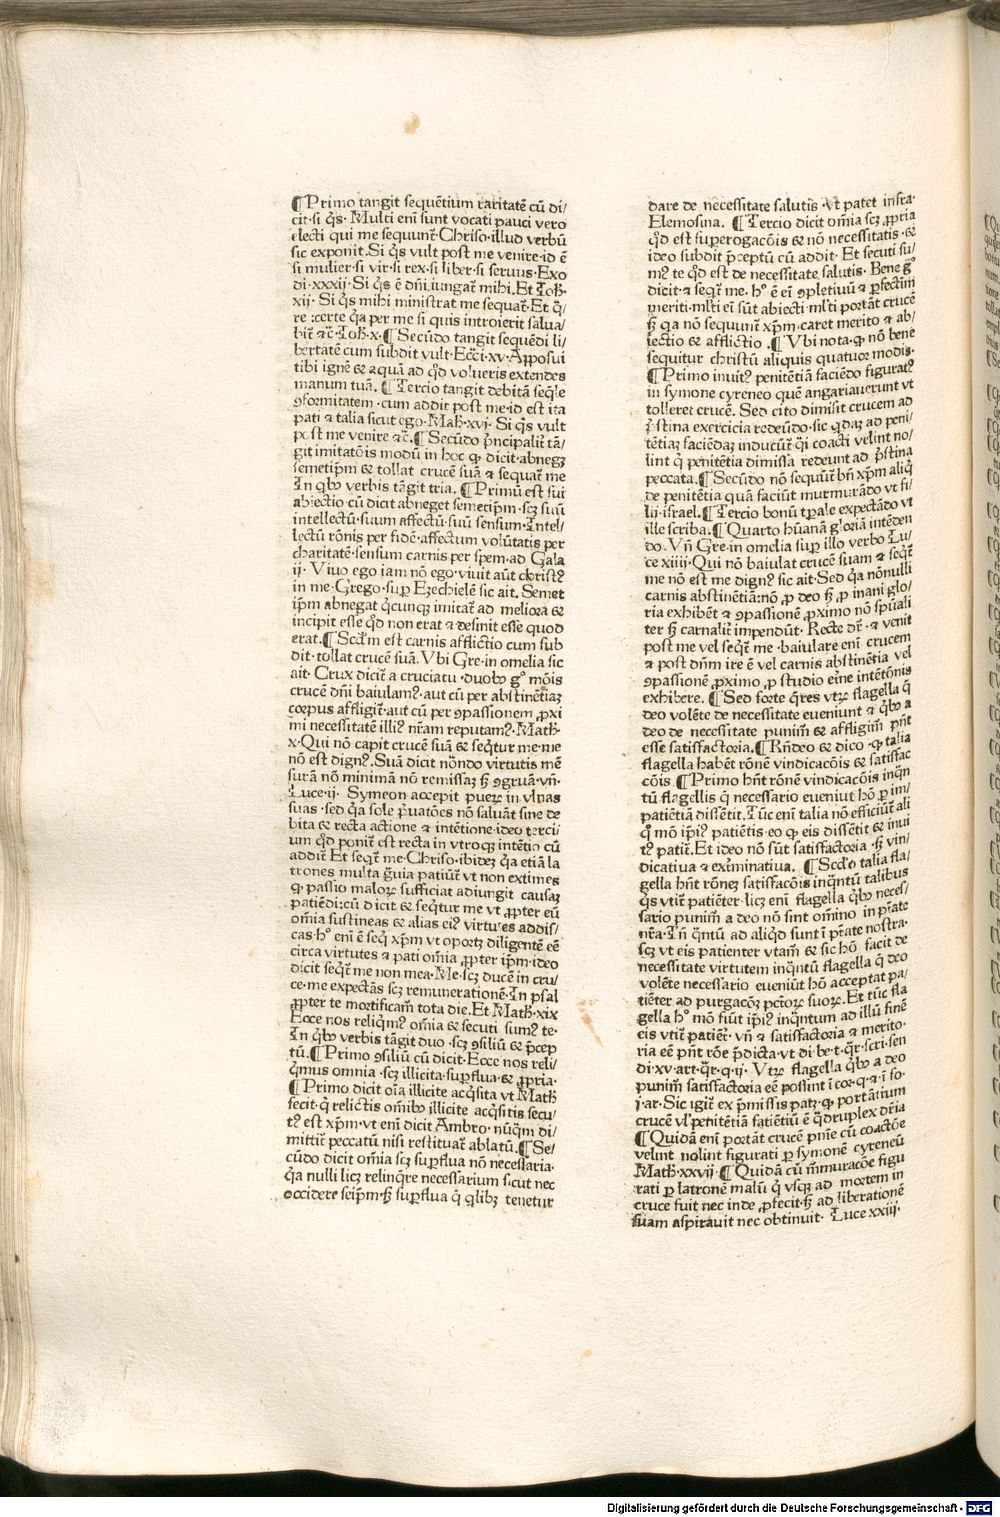 ¶Primo tangit sequẽtium raritatẽ cũ di/
cit·si q̃s· Multi eni sunt vocati pauci vero
electi qui me sequunt̃·Chriso·illud verbũ
sic exponit. Si q̃s vult post me venire·id ẽ
si mulier·si vir·si rex·si liber·si seruus·Exo
di·xxxij· Si q̃s ẽ dñi·iungat̃ mihi. Et Ioh̃·
xij· Si q̃s mihi ministrat me sequat̃·Et q̃/
re :certe q̃a per me si quis introierit salua/
bit̃ ⁊c̃·Ioh̃·x·¶Secũdo tangit sequẽdi li/
bertatẽ cum subdit vult·Ecc̃i·xv·Apposui
tibi ignẽ & aquã ad q̃d volueris extendes
manum tuã. ¶Tercio tangit debitã seq̃le
ꝯformitatem·cum addit post me·id est ita
pati ⁊ talia sicut ego·Math̃·xvj· Si q̃s vult
post me venire ⁊c̃.¶Secũdo p̃ncipalit̃ tã/
git imitatõis modũ in hoc ꝙ dicit·abnegꝫ
semetip̃m & tollat crucẽ suã ⁊ sequat̃ me
In qᷤbꝰ verbis tãgit tria. ¶Primũ est sui
abiectio·cũ dicit abneget semetip̃m·scꝫ suũ
intellectũ·suum affectũ·suũ sensum·Intel/
lectũ rõnis per fidẽ·affectum volũtatis per
charitatẽ·sensum carnis per spem·ad Gala
ij· Viuo ego iam nõ ego·viuit aũt christꝰ
in me·Grego·sup̃ Ezechielẽ sic ait. Semet
ip̃m abnegat q̃cunqꝫ imitat̃ ad meliora &
incipit esse q̃d non erat & desinit esse quod
erat.¶Scd̃m est carnis afflictio cum sub
dit·tollat crucẽ suã. Vbi Gre·in omelia sic
ait· Crux dicit̃ a cruciatu·duobꝰ gͦ mõis
crucẽ dñi baiulamꝰ·aut cũ per abstinẽtiaꝫ
corpus affligit̃·aut cũ per ꝯpassionem ꝓxi
mi necessitatẽ illiꝰ nr̃am reputamꝰ·Math̃·
x·Qui nõ capit crucẽ suã & seq̃tur me·me
nõ est dignꝰ. Suã dicit nõndo virtutis mẽ
surã nõ minimã nõ remissaꝫ sꝫ ꝯgruã·vñ·
Luce·ij· Symeon accepit pueꝝ in vlnas
suas·sed q̃a sole p̃uatões nõ saluãt sine de
bita & recta actione ⁊ intẽtione·ideo terci/
um q̃d ponit̃ est recta in vtroqꝫ intẽtio cũ
addit̃ Et seqt̃ me·Chriso·ibidez q̃a etiã la
trones multa g̃uia patiũt̃ vt non extimes
ꝙ passio maloꝝ sufficiat adiungit causaꝫ
patiẽdi:cũ dicit & seq̃tur me vt ꝓpter eũ
om̃ia sustineas & alias eiꝰ virtutes addis/
cas·hͦ eni ẽ seq̃ xp̃m vt oportꝫ diligentẽ eẽ
circa virtutes ⁊ pati om̃ia ꝓpter ip̃m·ideo
dicit seqt̃ me non mea·Me·scꝫ ducẽ in cru/
ce·me expectãs scꝫ remunerationẽ·In psal
ꝓpter te mortificam̃ tota die.Et Math̃·xix
Ecce nos reliq̃mꝰ om̃ia & secuti sumꝰ te·
In qᷤbꝰ verbis tãgit duo·scꝫ ꝯsiliũ & p̃cep
tũ.¶Primo ꝯsiliũ cũ dicit·Ecce nos reli/
q̃mus omnia·scꝫ illicita·sup̃flua·& ꝓpria·
¶Primo dicit oĩa illicite acq̃sita vt Math̃
fecit·q̃ relictis om̃ibꝰ illicite acq̃sitis secu/
tꝰ est xp̃m·vt eni dicit Ambro·nũq̃m di/
mittit̃ peccatũ nisi restituat̃ ablatũ.¶Se/
cũdo dicit om̃ia scꝫ sup̃flua nõ necessaria·
q̃a nulli licꝫ relinq̃re necessarium sicut nec
occidere seip̃m·sꝫ sup̃flua q̃ q̃libꝫ tenetur
dare de necessitate salutis·vt patet infra·
Elemosina. ¶Tercio dicit om̃ia scꝫ ꝓpria
q̃d est superogacõis & nõ necessitatis·&
ideo subdit p̃ceptũ cũ addit· Et secuti su/
mꝰ te q̃d est de necessitate salutis· Bene gͦ
dicit·⁊ seqt̃ me·hͦ ẽ eni ꝯpletiuũ ⁊ ꝑfectim
meriti·ml̃ti ei sũt abiecti·ml̃ti portãt crucẽ
sꝫ q̃a nõ sequunt̃ xp̃m·caret merito ⁊ ab/
iectio & afflictio .¶Vbi nota·ꝙ nõ bene
sequitur christũ aliquis quatuor modis·
¶Primo inuitꝰ penitẽtiã faciẽdo figuratꝰ
in symone cyreneo quẽ angariauerunt vt
tolleret crucẽ. Sed cito dimisit crucem ad
p̃stina exercicia redeũdo·sic q̃daꝫ ad peni/
tẽtiaꝫ faciẽdaꝫ inducũt̃ q̃i coacti velint no/
lint q̃ penitẽtia dimissa redeunt ad p̃stina
peccata.¶Secũdo nõ sequũt̃ bñ xp̃m aliq̃
de penitẽtia quã faciũt murmurãdo vt fi/
lij·israel.¶Tercio bonũ tp̃ale expectãdo vt
ille scriba.¶Quarto hũanã gloriã intẽden
do· Vñ Gre·in omelia sup̃ illo verbo Lu/
ce xiiij·Qui nõ baiulat crucẽ suam & seqt̃
me nõ est me dignꝰ sic ait·Sed q̃a nõnulli
carnis abstinẽtiã:nõ ꝓ deo sꝫ ꝓ inani glo/
ria exhibẽt & ꝯpassionẽ ꝓximo nõ spũali
ter sꝫ carnalit̃ impendũt· Recte dr̃·⁊ venit
post me vel seqt̃ me·baiulare eni crucem
⁊ post dñm ire ẽ vel carnis abstinẽtia vel
ꝯpassionẽ ꝓximo ꝓ studio et̃ne intẽtõnis
exhibere. ¶Sed forte q̃res vtꝝ flagella q̃
deo volẽte de necessitate eueniunt ⁊ qᷤbꝰ a
deo de necessitate punim̃ & affligim̃ pñt
esse satisfactoria.¶Rñdeo & dico·ꝙ talia
flagella habẽt rõnẽ vindicacõis & satisfac
cõis ¶Primo hñt rõnẽ vindicacõis inq̃n
tũ flagellis q̃ necessario eueniut hõ ꝑ im/
patiẽtiã dissẽtit.Tũc eni talia nõ efficiũt̃ ali
qͦ mõ ip̃iꝰ patiẽtis·eo ꝙ eis dissẽtit & inui
tꝰ patit̃.Et ideo nõ sũt satisfactoria·sꝫ vin/
dicatiua ⁊ ext̃minatiua. ¶Scd̃o talia fla/
gella hñt rõnez satisfaccõis inq̃ntũ talibus
q̃s vtit̃ patiẽter·licꝫ eni flagella qᷤbꝰ neces/
sario punim̃ a deo nõ sint om̃ino in p̃tate
nr̃a·Tñ q̃ntũ ad aliq̃d sunt ĩ p̃tate nostra·
scꝫ vt eis patienter vtam̃ & sic hõ facit de
necessitate virtutem inq̃ntũ flagella q̃ deo
volẽte necessario eueniũt hõ acceptat pa/
tiẽter ad purgacõꝫ pctoꝝ suoꝝ.Et tũc fla
gella hͦ mõ fiũt ip̃iꝰ inq̃ntum ad illũ finẽ
eis vtit̃ patiẽt̃· vñ ⁊ satisfactoria ⁊ merito·
ria eẽ pñt rõe p̃dicta·vt di·be·t·q̃r·scri·sen
di·xv·art·q̃r·q·ij· Vtꝝ flagella qᷤbꝰ a deo
punim̃ satisfactoria eẽ possint ĩ cor·q·⁊ ĩ fo·
j·ar·Sic igit̃ ex p̃missis patꝫ·ꝙ portãtium
crucẽ vl̃ penitẽtiã fatiẽtiũ ẽ q̃druplex dr̃ia
¶Quidã eni portãt crucẽ pnĩe cũ coactõe
velint nolint figurati ꝑ symonẽ cyreneũ
Math̃·xxvij·¶Quidã cũ m̃muracõe figu
rati ꝑ latronẽ malũ q̃ vsqꝫ ad mortem in
cruce fuit nec inde ꝓfecit·sꝫ ad liberationẽ
suam aspirauit nec obtinuit· Luce xxiij·
Digitalisierung gefördert durch die Deutsche Forschungsgemeinschaft - DFG